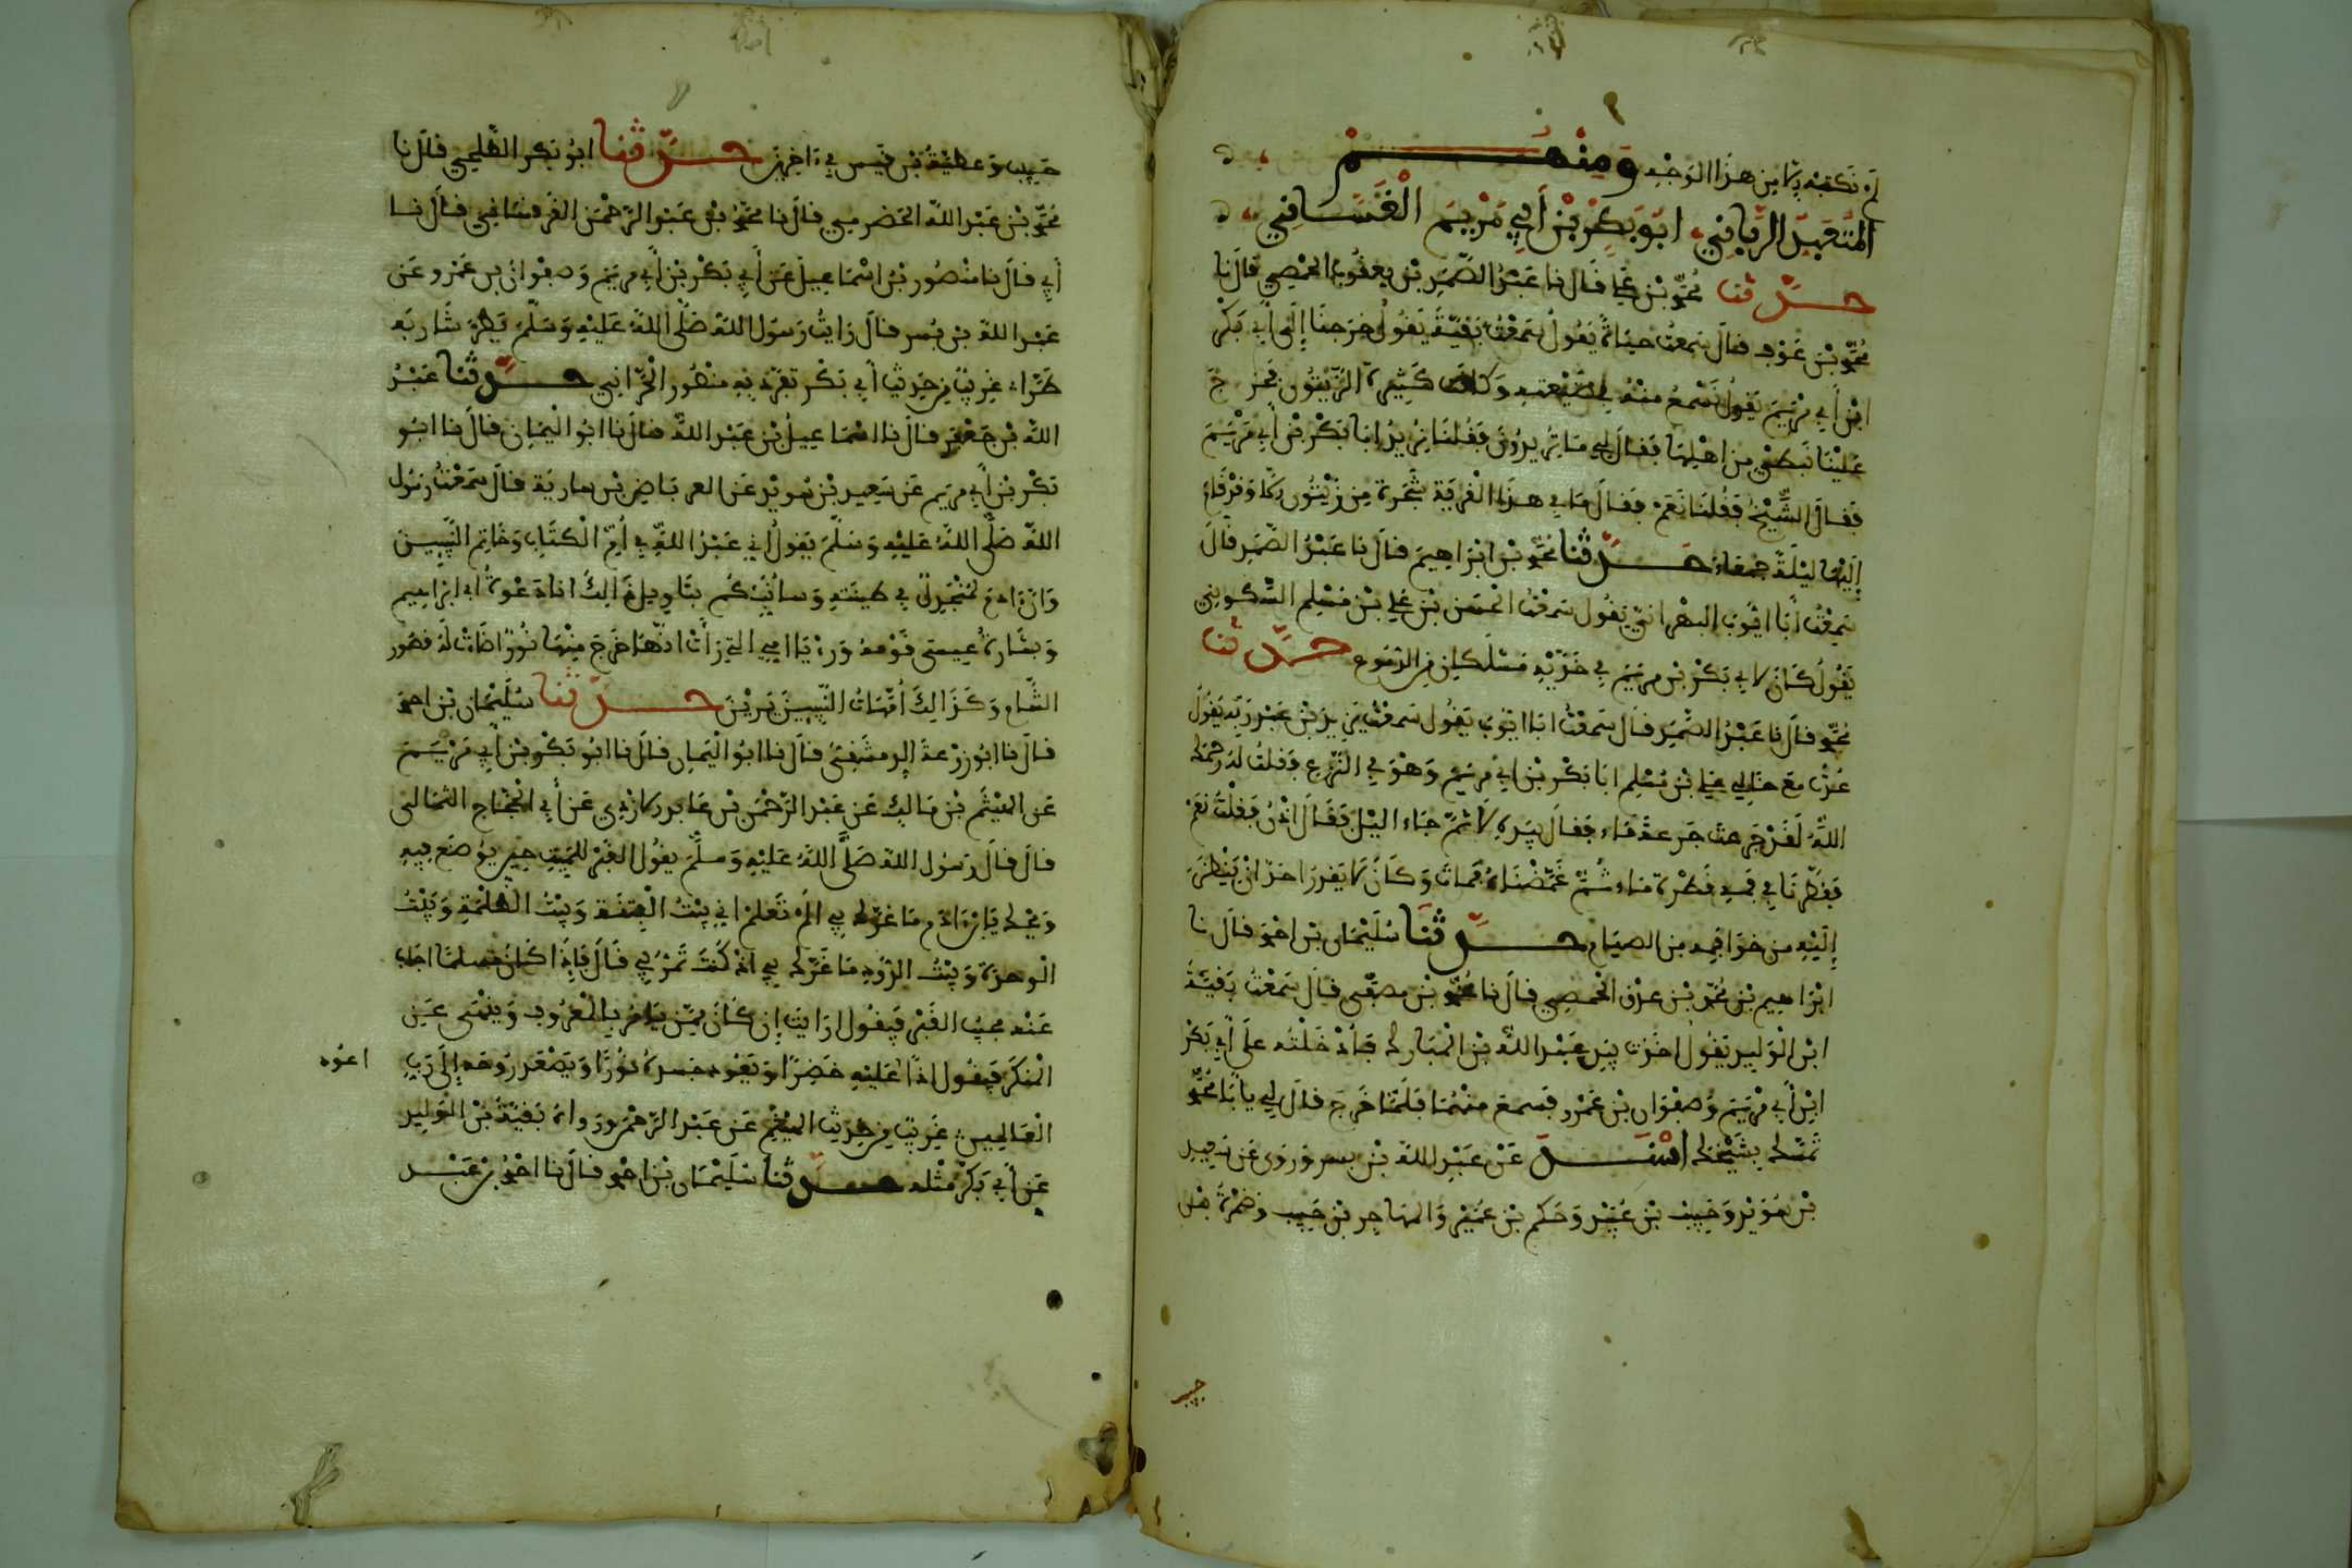 لم نكتبه إلا من هذا الوجه ومنهم
المتعبد الرباني ابو بكر بن أبي مريم الغساني
حدثنا محمد بن علي قال نا عبد الصمد بن يعقوب الحمصي قال نا
محمد بن عوف قال سمعت حياة يقول سمعت بقية يقول خرجنا إلى أبي بكر
ابن أبي مريم يقول نسمع منه في ضيعته وكانت كثيرة الزيتون فخرج
علينا نبطي من اهلها فقال لي ما تريدون فقلنا نريد ابا بكر بن أبي مريم
فقال الشيخ فقلنا نعم فقال ما في هذه القرية شجرة من زيتون إلا وقد قام
إليها ليلة جمعاء حدثنا محمد بن ابراهيم قال نا عبد الصمد قال
سمعت أبا ايوب البهراني يقول سمعت الحسن بن علي بن مسلم السكوني
يقول كان لابي بكر بن مريم في خديه مسلكان من الدموع حدثنا
محمد قال نا عبد الصمد قال سمعت ابا ايوب يقول سمعت يزيد بن عبد ربه يقول
عدت مع خالي علي بن مسلم ابا بكر بن أبي مريم وهو في النزع فقلت له رحمك
الله لو جرعت جرعة ماء فقال بيده لا ثم جاء الليل فقال اذن فقلت نعم
فقطرنا في فمه قطرة ماء ثم غمضناه فمات وكان لا يقدر احد ان ينظر
إليه من خوا فمه من الصيام حدثنا سليمان بن احمد قال نا
ابراهيم بن محمد بن عرق الحمصي قال نا محمد بن مصفى قال سمعت بقية
ابن الوليد يقول اخذت بيد عبد الله بن المبارك فأدخلته على أبي بكر
ابن أبي مريم وصفوان بن عمرو فسمع منهما فلما خرج قال لي يا أبا محمد
تمسك بشيخك اسند عن عبد الله بن بسر وروى عن سعيد
بن سويد وحبيب بن عبيد وحكم بن عمير والمهاجر بن حبيب وضمرة بن
حبيب
حبيب وعطية بن قيس في ءاخرين حدثنا ابو بكر الطلحي قال نا
محمد بن عبد الله الحضرمي قال نا محمد بن عبد الرحمن الغرقساني قال نا
أبي قال نا منصور بن اسماعيل عن أبي بكر بن أبي مريم وصفوان بن عمرو عن
عبد الله بن بسر قال رايت رسول الله صلى الله عليه وسلم يطر شاربه
طراء غريب من حديث أبي بكر تفرد به منصور الحراني حدثنا عبد
الله بن جعفر قال نا اسماعيل بن عبد الله قال نا ابو اليمان قال نا ابو
بكر بن أبي مريم عن سعيد بن سويد عن العرباض بن سارية قال سمعت رسول
الله صلى الله عليه وسلم يقول اني عبد الله في أم الكتاب وخاتم النبيين
وان ءادم لمنجدل في طينته وسأنبئكم بتاويل ذالك انا دعوة أبي ابراهيم
وبشارة عيسى قومه ورءيا امي التي رأت انها خرج منها نور اضات له قصور
الشام وكذالك أمهات النبيين يرين حدثنا سليمان بن احمد
قال نا ابو زرعة الدمشقي قال نا ابو اليمان قال نا ابو بكر بن أبي مريم
عن الهيثم بن مالك عن عبد الرحمن بن عايد الازدي عن أبي الحجاج الثمالي
قال قال رسول الله صلى الله عليه وسلم يقول القبر للميت حين يوضع فيه
ويحك يا بن ءادم ما غرك بي الم تعلم اني بيت الفتنة وبيت الظلمة وبيت
الوحدة وبيت الدود ما غرك بي اذ كنت تمر بي قال فإذا كان مسلما اجاب
عنه مجيب القبر فيقول ارايت إن كان ممن يامر بالمعروف وينهى عن
المنكر فيقول اذا عليه خضرا ويعود جسده نورا ويصعد روحه إلى رب
اعوه
العالمين غريب من حديث الهيثم عن عبد الرحمن ورواه بقية بن الوليد
عن أبي بكر مثله حدثنا سليمان بن احمد قال نا احمد بن عبد